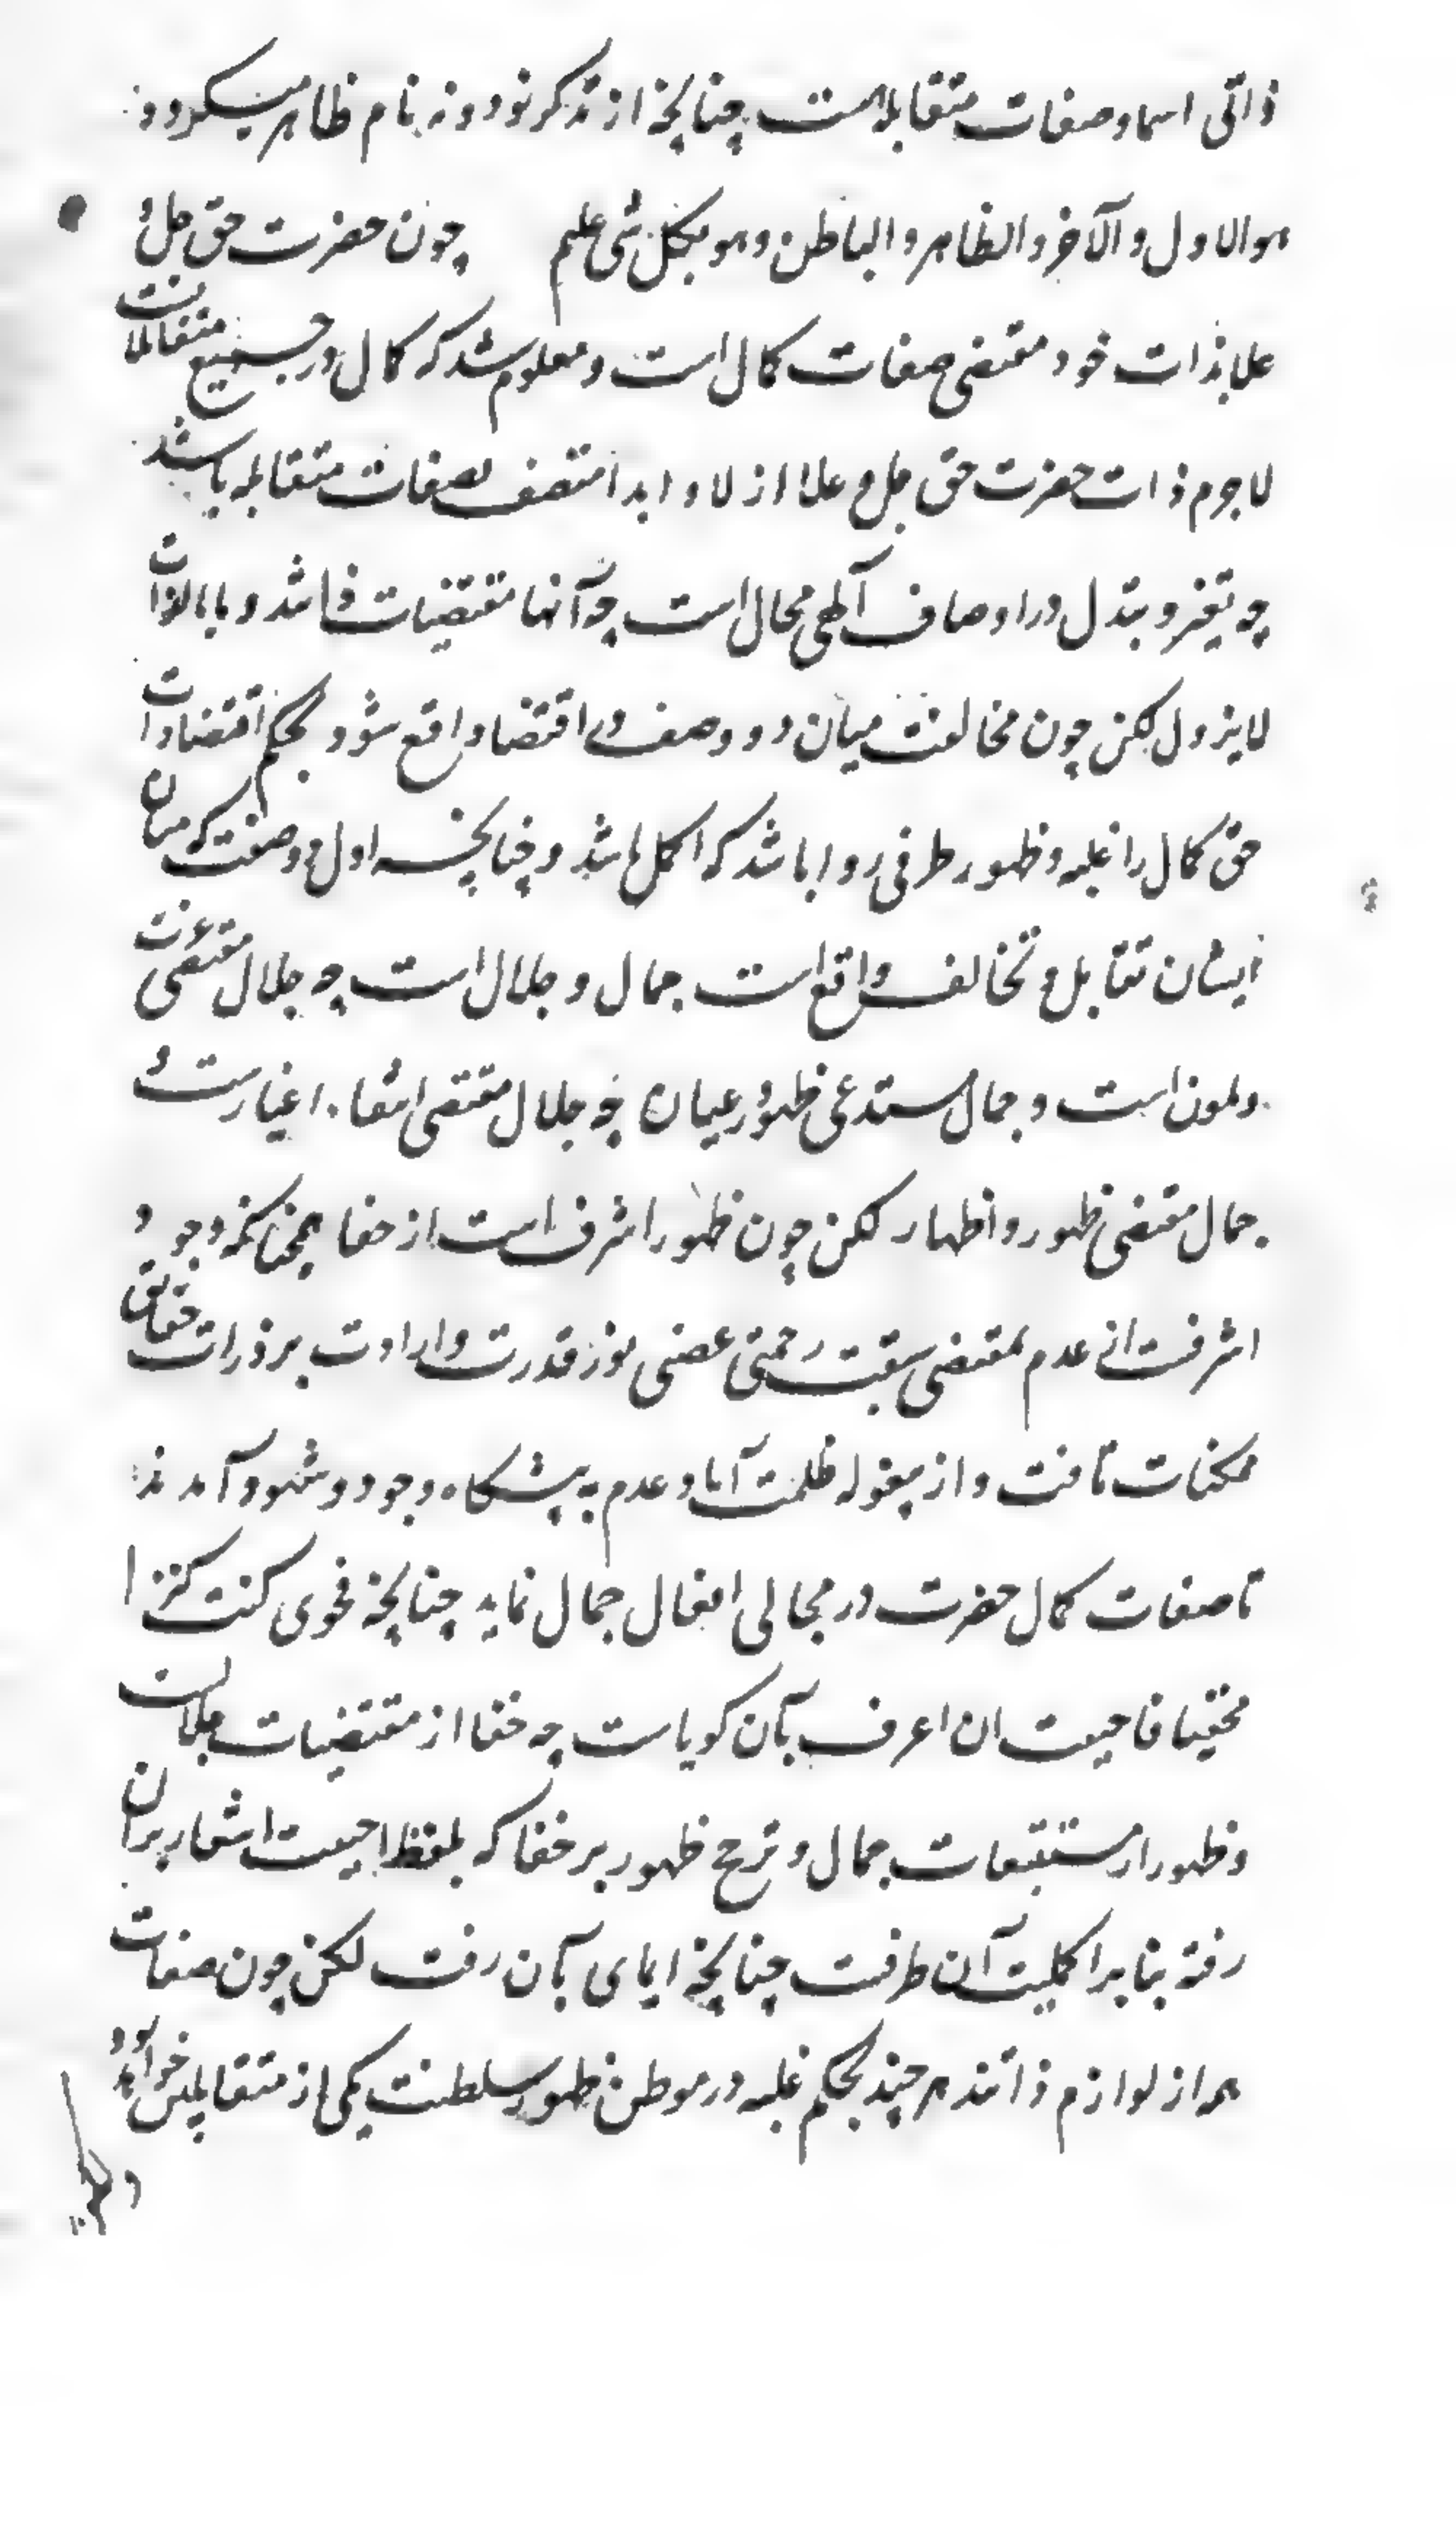 ذاتی اسما و صفات متقابله است چنانچه از تذکر نود و نه نام ظاهر میکردد
هو الاول و الآخر و الظاهر و الباطن و هو بکل شی علیم چون حضرت حق جل و
علا بذات خود مقتضی صفات کمال است و معلوم شد که کمال در جمیع متقابلات
لاجرم ذات حضرت حق جل و علا ازلا و ابدا متصف بصفات متقابله باشد
چه تغیر و تبدل در اوصاف آلهی محال است چه آنها مقتضیات ذاتند و ما بالذات
لا یزول لکن چون مخالفت میان دو وصف در اقتضا واقع شود بحکم اقتضا ذات
حق کمال را غلبه و ظهور طرفی روا باشد که اکمل باشد و چنانچه اول دو صفت که میان
ایشان تقابل و تخالف واقع است جمال و جلال است چه جلال مقتضی عزت
و بطون است و جمال مستدعی ظهور و عیان چه جلال مقتضی انتفاء اغیارست و
جمال مقتضی ظهور و اظهار لکن چون ظهور اشرف است از خفا همچنانکه وجود
اشرفست از عدم بمقتضی سبقت رحمتی غضبی نور قدرت و ارادت بر ذرات حقایق
ممکنات تافت و از بیغوله ظلمت آباد عدم به پیشکاه وجود و شهود آمدند
تا صفات کمال حضرت در مجالی افعال جمال نماید چنانچه فحوی کنت کنزا
مخفیا فاحببت ان اعرف بآن کویاست چه خفا از مقتضیات جلالست
و ظهور از مستتبعات جمال و ترجح ظهور بر خفا که بلفظ احببت اشعار بران
رفته بنا بر اکملیت آن طرفست چنانچه ایمای بآن رفت لکن چون صفات
همه از لوازم ذاتند هر چند بحکم غلبه در موطن ظهور سلطنت یکی از متقابلین خواهد بود